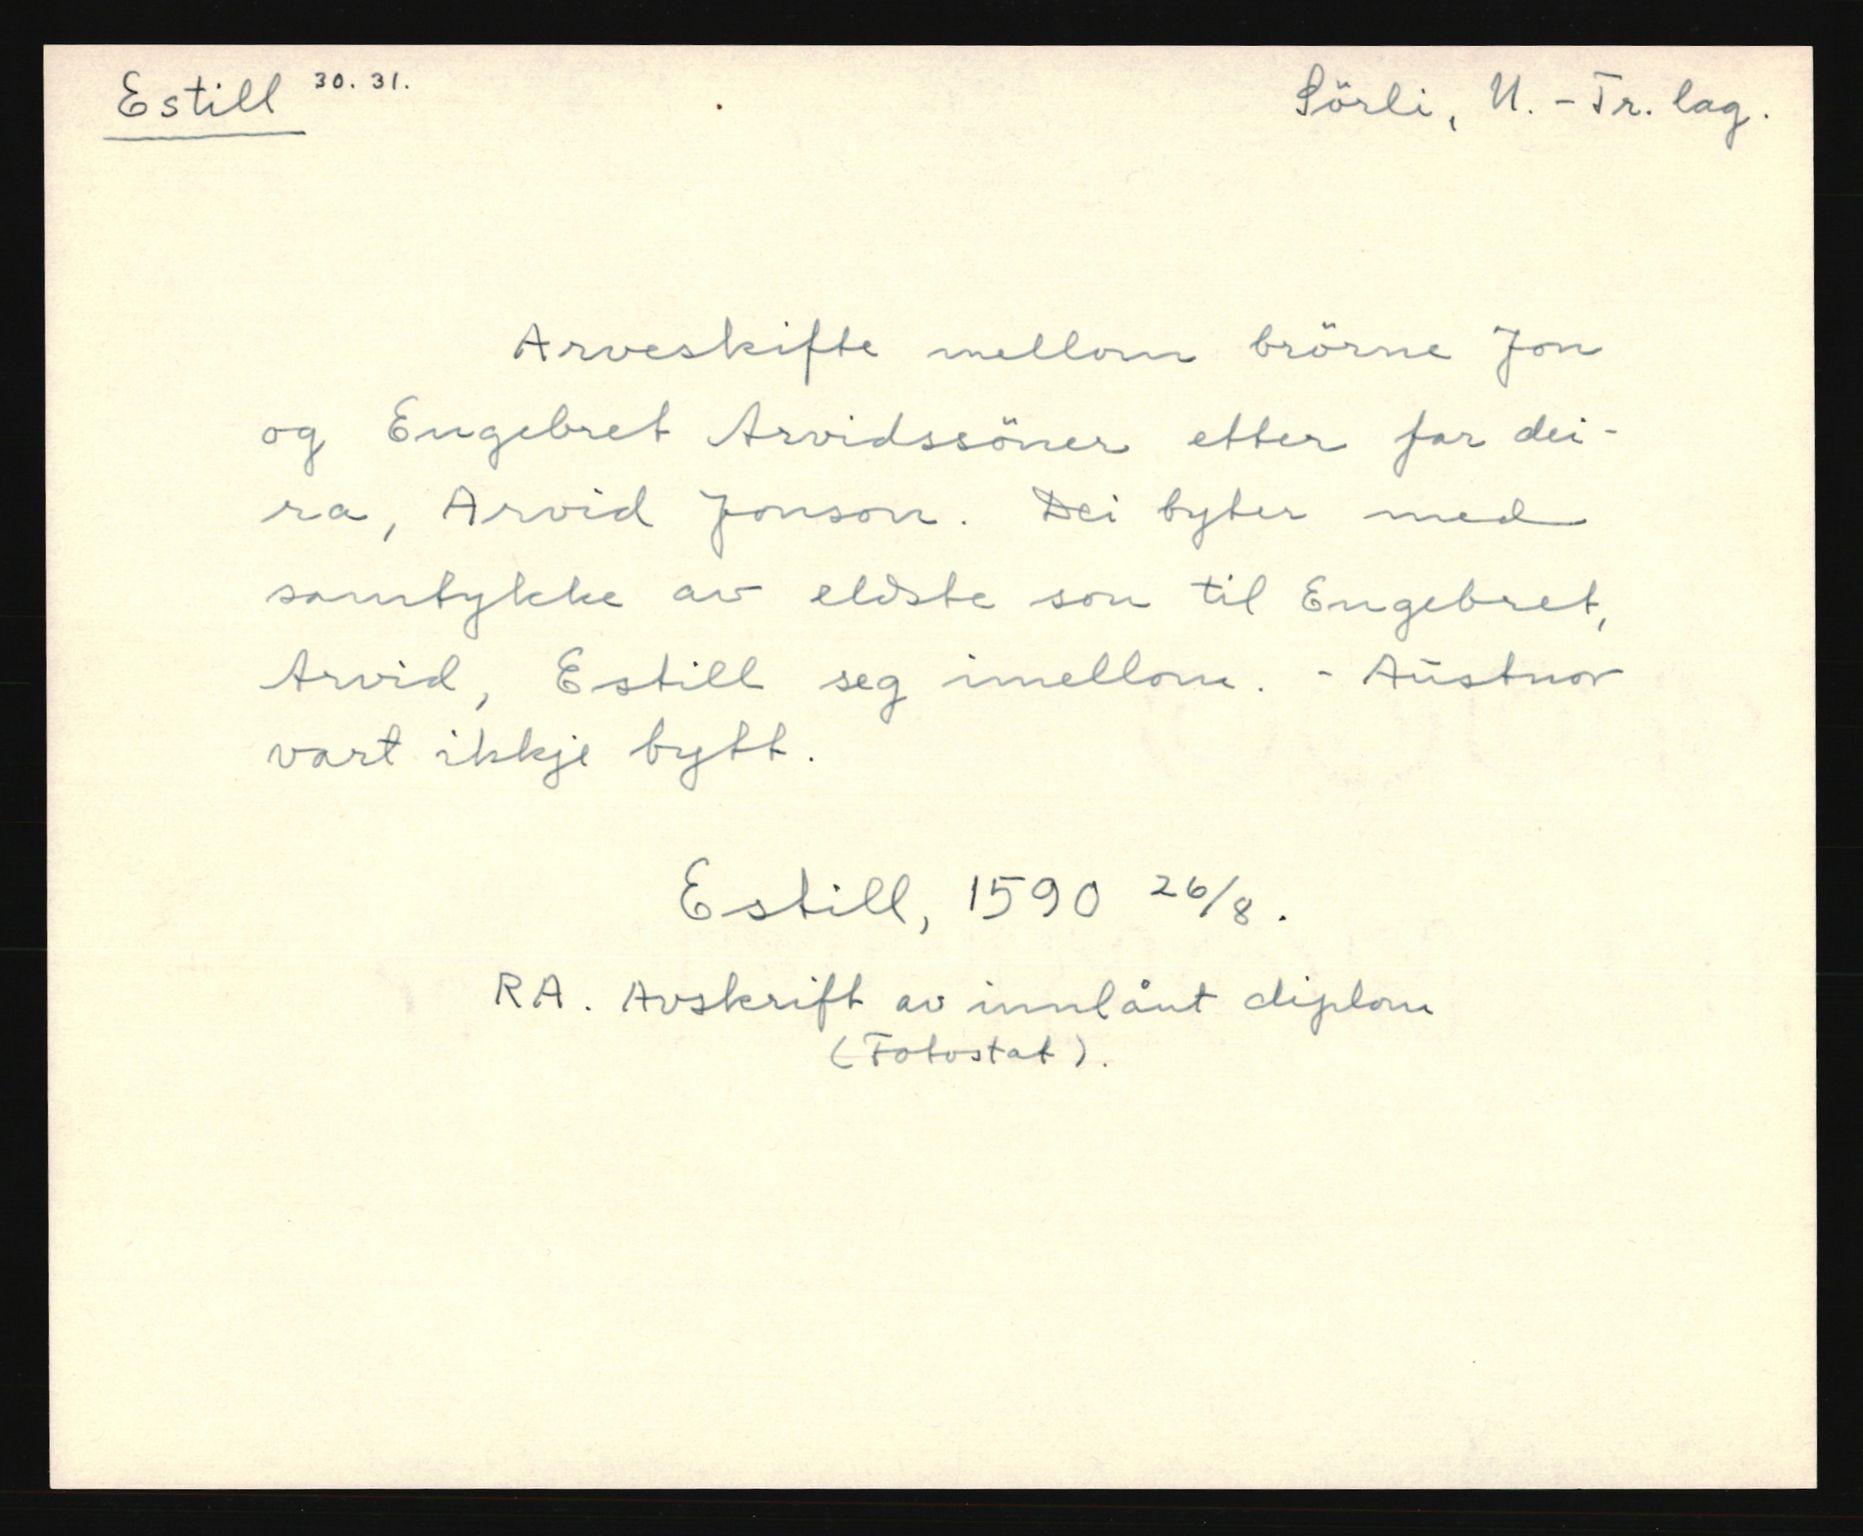 Estill 30. 31.
Sörli, N. - Tr. lag.
Arveskifte mellom brörne Jon
og Engebret Arvidssöner etter far dei-
ra, Arvid Jonson. Dei byter med
samtykke av eldste son til Engebret,
Arvid, Estill seg imellom. - Austnor
vart ikkje bytt.
Estill, 1590 26/8.
RA. Avskrift av innlånt diplom
(Fotostat).